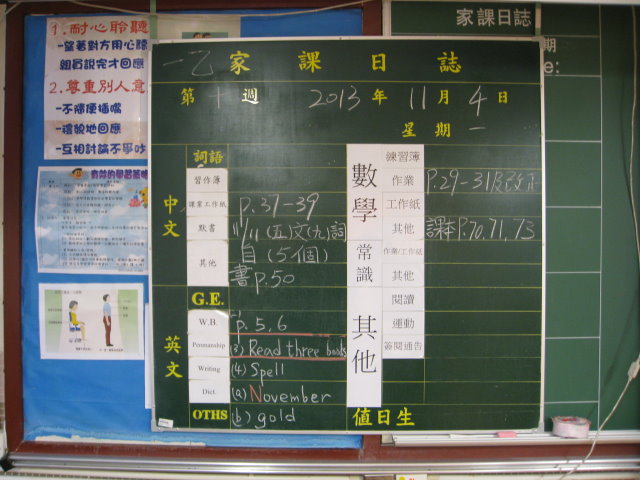 1.耐心聆聽
-望著對方用心聽
組員說完才回應
2.尊重別人意
-不隨便插嘴
-禮貌地回應
-互相討論不爭吵
家課日誌
期
e:
一乙家課日誌
第十週 2013年11月4日
星期一
中文
詞語
習作簿
課業工作紙 p.37-39
默書 11/11(五)文(九)詞
其他 自(5個)
書p.50
英文
G.E.
W.B. p.5,6
Penmanship (3) Read three books
Writing (4) Spell
Dict. (a) November
OTHS (b) gold
數學
練習簿
作業 P.29-31及改正
工作紙
其他 課本P.70,71,73
常識
作業/工作紙
其他
其他
閱讀
運動
簽閱通告
值日生